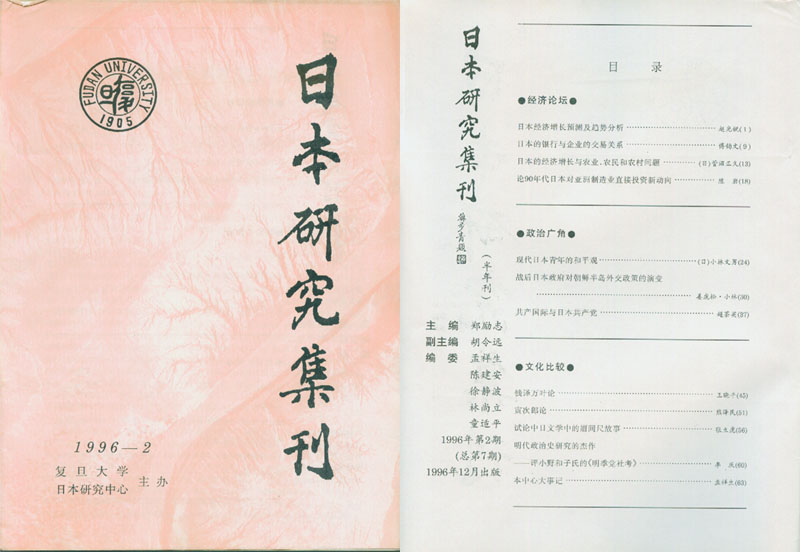 FUDAN UNIVERSITY
1905
日本研究集刊
1996—2
复旦大学
日本研究中心 主办
日本研究集刊
(半年刊)
主编 郑励志
副主编 胡令远
编委 孟祥生
陈建安
徐静波
林尚立
童适平
1996年第2期
(总第7期)
1996年12月出版
目 录
●经济论坛●
日本经济增长预测及趋势分析 (1)
日本的银行与企业的交易关系 (9)
日本的经济增长与农业、农民和农村问题 (13)
论90年代日本对亚洲制造业直接投资新动向 (18)
●政治广角●
现代日本青年的和平观 (日)小林文男(24)
战后日本政府对朝鲜半岛外交政策的演变
·小林(30)
共产国际与日本共产党 (37)
●文化比较●
钱泽万叶论 王晓平(45)
寅次郎论 (51)
试论中日文学中的道网尺故事 张立虎(56)
明代政治史研究的杰作
——评小野和子氏的《明季党社考》 李庆(60)
本中心大事记 孟祥生(63)